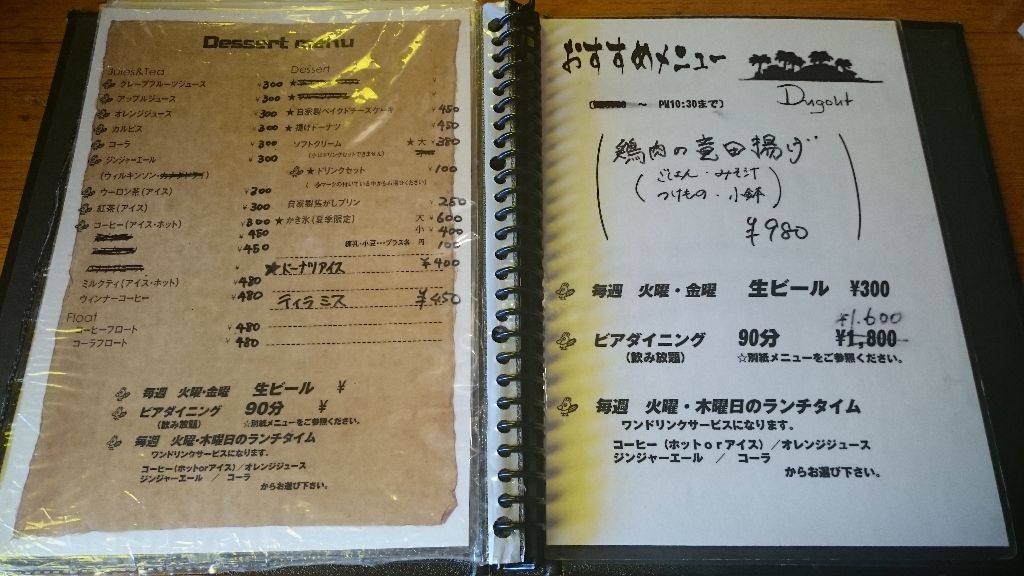 Dessert menu
Juies&Tea
グレープフルーツジュース ¥300
アップルジュース ¥300
オレンジジュース ¥300
カルピス ¥300
コーラ ¥300
ジンジャーエール ¥300
(ウィルキンソン・
ウーロン茶(アイス) ¥300
紅茶(アイス) ¥300
コーヒー(アイス・ホット) ¥300
¥450
¥450
ミルクティ(アイス・ホット) ¥480
ウィンナーコーヒー ¥480
Float
コーヒーフロート ¥480
コーラフロート ¥480
Dessert
★自家製ベイクドチーズケーキ ¥450
★揚げドーナツ ¥450
ソフトクリーム ★大 ¥380
★ドリンクセット ¥100
自家製焦がしプリン ¥250
★かき氷(夏季限定) 大 ¥600
小 ¥400
練乳・小豆・・・プラス各 円 100
★ドーナツアイス ¥400
ティラミス ¥450
毎週 火曜・金曜 生ビール ¥
ビアダイニング 90分 ¥
(飲み放題) ☆別紙メニューをご参照ください。
毎週 火曜・木曜日のランチタイム
ワンドリンクサービスになります。
コーヒー(ホットorアイス)/オレンジジュース
ジンジャーエール / コーラ
からお選び下さい。
おすすめメニュー
Dugout
~ PM10:30まで)
鶏肉の竜田揚げ
(ごはん・みそ汁
つけもの・小鉢)
¥980
毎週 火曜・金曜 生ビール ¥300
¥1,600
ビアダイニング 90分 ¥1,800
(飲み放題) ☆別紙メニューをご参照ください。
毎週 火曜・木曜日のランチタイム
ワンドリンクサービスになります。
コーヒー(ホットorアイス)/オレンジジュース
ジンジャーエール / コーラ
からお選び下さい。